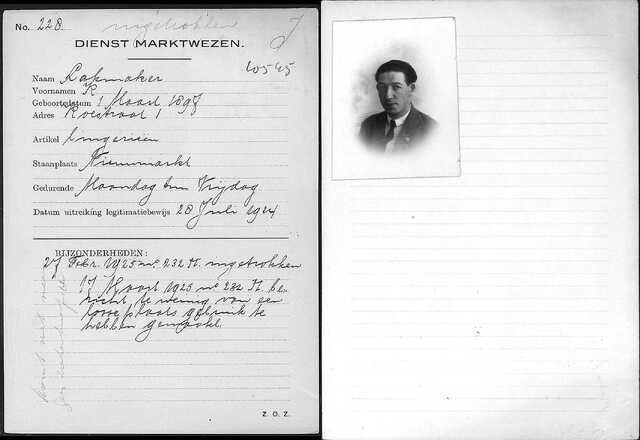 No. 228 ingetrokken J
DIENST MARKTWEZEN.
10545
Naam Lakmaker
Voornamen K
Geboortedatum 1 Maart 1898
Adres Roestraat 1
Artikel
Staanplaats Nieuwmarkt
Gedurende Maandag t/m Vrijdag
Datum uitreiking legitimatiebewijs 28 Juli 1924
BIJZONDERHEDEN:
27 Febr. 1925 no. 232 M. ingetrokken
17 Maart 1925 no 282 M. be-
richt, te weinig van een
losse plaats gebruik te
hebben gemaakt.
Z. O. Z.